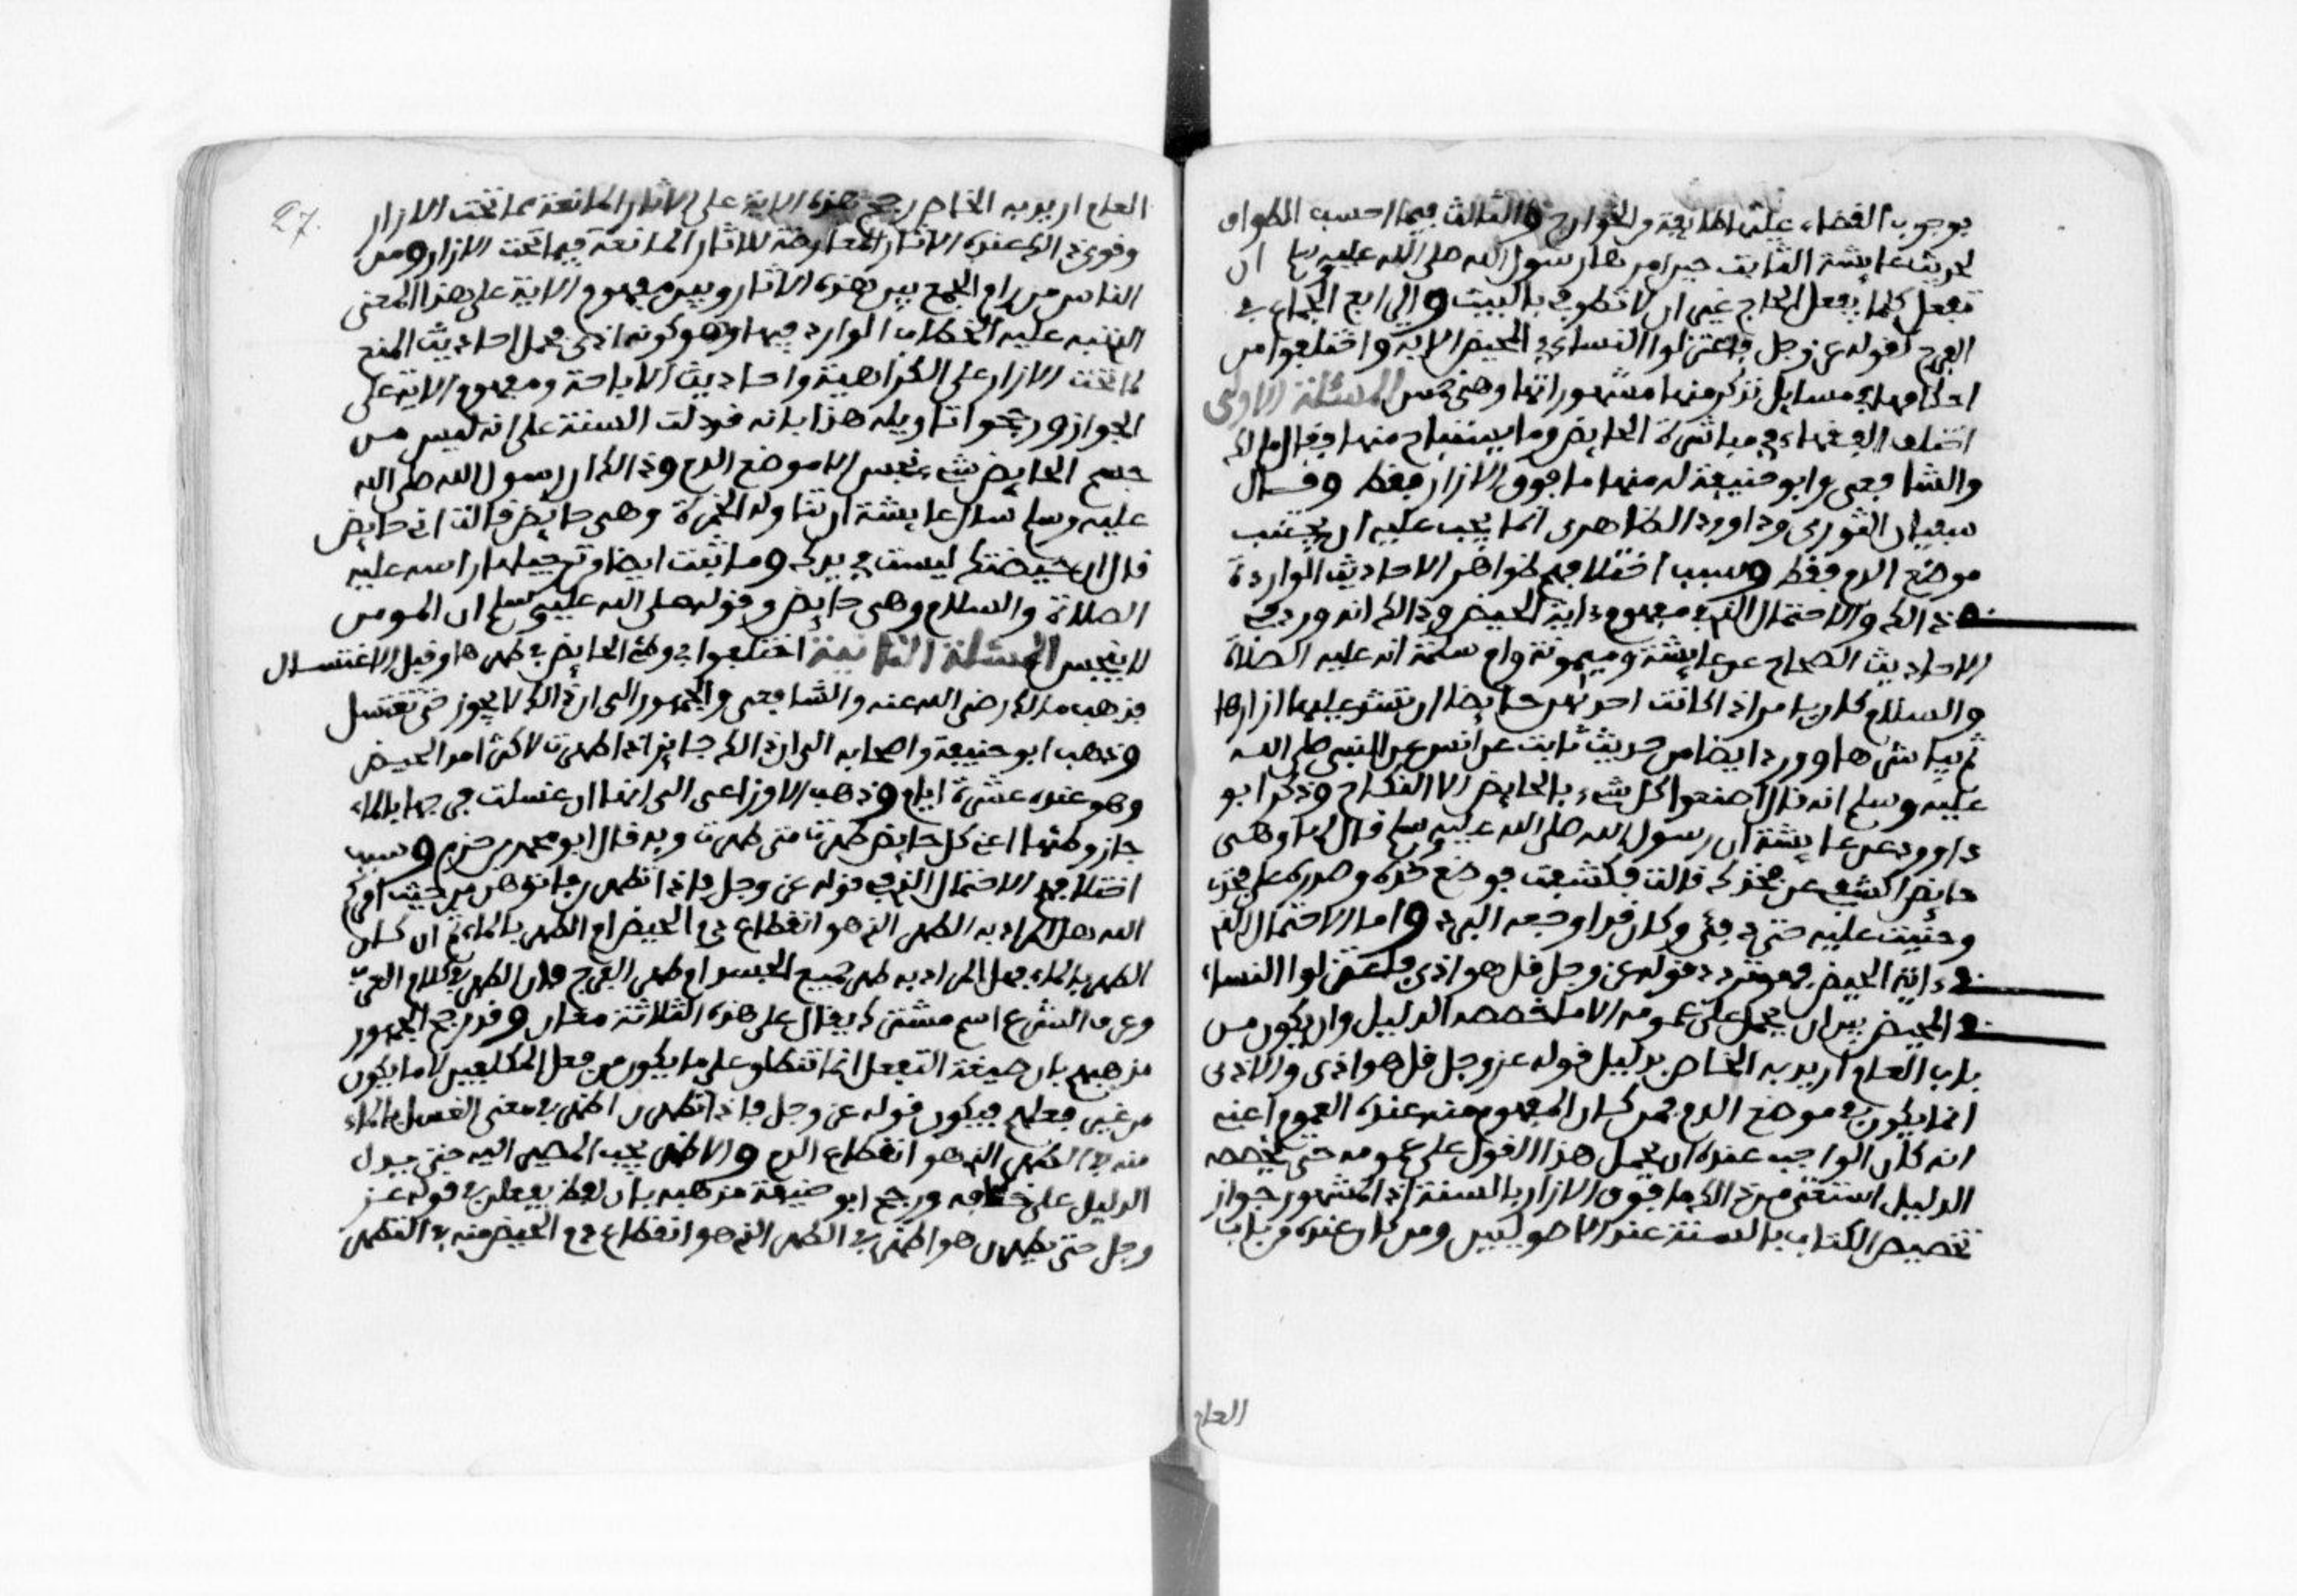 بوجوب القضاء عليها طايفة من الخوارج والثالث فيما احسب الطواف
لحديث عايشة الثابت حين امرها رسول الله صلى الله عليه وسلم ان
تفعل كلما يفعل الحاج غير ان لا تطوف بالبيت والرابع الجماع في
الفرج لقوله عز وجل فاعتزلوا النساء في المحيض الاية واختلفوا من
احكامها في مسايل نذكر منها مشهوراتها وهي خمس المسئلة الاولى
اختلف الفقهاء في مباشرة الحايض وما يستباح منها فقال مالك
والشافعي وابو حنيفة له منها ما فوق الازار فقط وقال
سفيان الثوري وداوود الظاهري انما يجب عليه ان يجتنب
موضع الدم فقط وسبب اختلافهم ظواهر الاحاديث الواردة
في ذالك والاحتمال الذي في مفهوم ءاية الحيض وذالك انه ورد في
الاحاديث الصحاح عن عايشة وميمونة وام سلمة انه عليه الصلاة
والسلام كان يامر اذا كانت احداهن حايضا ان تشد عليها ازارها
ثم يباشرها وورد ايضا من حديث ثابت عن انس عن النبي صلى الله
عليه وسلم انه قال اصنعوا كل شيء بالحايض الا النكاح وذكر ابو
داوود عن عايشة ان رسول الله صلى الله عليه وسلم قال لها وهي
حايض اكشفي عن فخذك قالت فكشفت فوضع خده وصدره على فخذي
وحنيت عليه حتى دفئ وكان قد اوجعه البرد واما الاحتمال الذي
في ءاية الحيض فهو تردد قوله عز وجل قل هو اذى فاعتزلوا النساء
في المحيض بين ان يحمل على عمومه الا ما خصصه الدليل وان يكون من
باب العام اريد به الخاص بدليل قوله عز وجل قل هو اذى والاذى
انما يكون في موضع الدم فمن كان المفهوم منه عنده العموم اعني
انه كان الواجب عنده ان يحمل هذا القول على عمومه حتى يخصصه
الدليل استثنى من ذالك ما فوق الازار بالسنة اذ المشهور جواز
تخصيص الكتاب بالسنة عند الاصوليين ومن كان عنده من باب
العام
27.
العام اريد به الخاص رجح هذه الاية على الاثار المانعة مما تحت الازار
وقوي ذالك عنده الاثار المعارضة للاثار المانعة فيما تحت الازار ومن
الناس من رام الجمع بين هذه الاثار وبين مفهوم الاية على هذا المعنى
الذي نبه عليه الخطاب الوارد فيها وهو كونه اذى فحمل احاديث المنع
لما تحت الازار على الكراهية واحاديث الاباحة ومفهوم الاية على
الجواز ورجحوا تاويله هذا بانه قد دلت السنة على انه ليس من
جسم الحايض شيء نجس الا موضع الدم وذالك ان رسول الله صلى الله
عليه وسلم سال عايشة ان تناوله الخمرة وهي حايض قالت اني حايض
قال ان حيضتك ليست في يدك وما ثبت ايضا من ترجيلها راسه عليه
الصلاة والسلام وهي حايض وقوله صلى الله عليه وسلم ان المومن
لا ينجس المسئلة الثانية اختلفوا في وطئ الحايض في طهرها وقبل الاغتسال
فذهب مالك رضي الله عنه والشافعي والجمهور الى ان ذالك لا يجوز حتى تغتسل
وذهب ابو حنيفة واصحابه الى ان ذالك جايز اذا طهرت لاكثر امد الحيض
وهو عنده عشرة ايام وذهب الاوزاعي الى انها ان غسلت فرجها بالماء
جاز وطئها اعني كل حايض طهرت متى طهرت وبه قال ابو محمد بن حزم وسبب
اختلافهم الاحتمال الذي في قوله عز وجل فاذا تطهرن فاتوهن من حيث امركم
الله هل المراد به الطهر الذي هو انقطاع دم الحيض ام الطهر بالماء ثم ان كان
الطهر بالماء فهل المراد به طهر جميع الجسد ام طهر الفرج فان الطهر في كلام العرب
وعرف الشرع اسم مشترك يقال على هذه الثلاثة معان وقد رجح الجمهور
مذهبهم بان صيغة التفعل انما تنطلق على ما يكون من فعل المكلفين لا ما يكون
من غير فعلهم فيكون قوله عز وجل فاذا تطهرن اظهر في معنى الغسل بالماء
منه في الطهر الذي هو انقطاع الدم والاظهر يجب المصير اليه حتى يدل
الدليل على خلافه ورجح ابو حنيفة مذهبه بان لفظ يفعلن في قوله عز
وجل حتى يطهرن هو اظهر في الطهر الذي هو انقطاع دم الحيض منه في التطهر